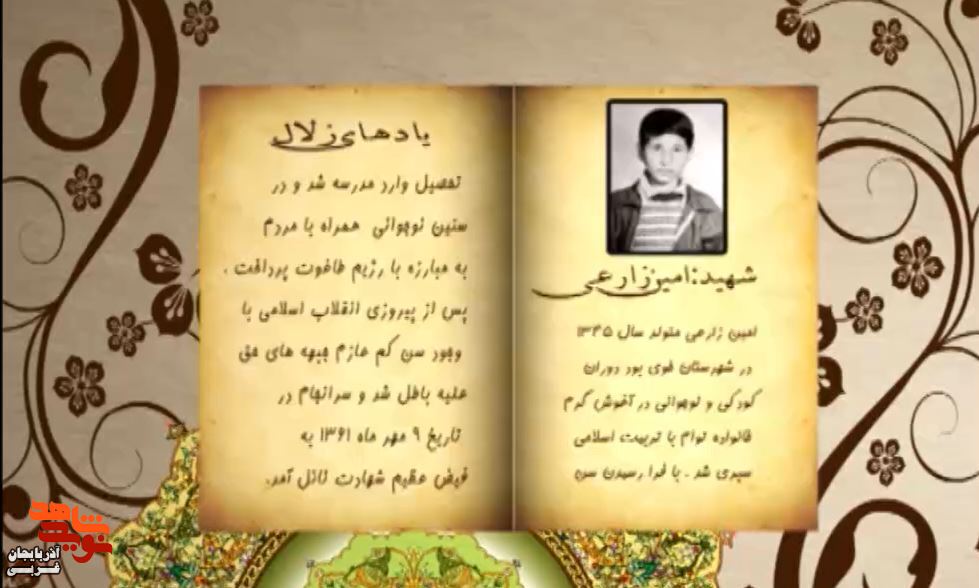 شهید:امین زارعی
امین زارعی متولد سال ۱۳۴۵
در شهرستان خوی بود دوران
کودکی و نوجوانی در آغوش گرم
خانواده توام با تربیت اسلامی
سپری شد . با فرا رسیدن سن
یادهای زلال
تحصیل وارد مدرسه شد و در
سنین نوجوانی همراه با مردم
به مبارزه با رژیم طاغوت پرداخت .
پس از پیروزی انقلاب اسلامی با
وجود سن کم عازم جبهه های حق
علیه باطل شد و سرانجام در
تاریخ ۹ مهر ماه ۱۳۶۱ به
فیض عظیم شهادت نائل آمد.
نوید شاهد
آذربایجان
غربی